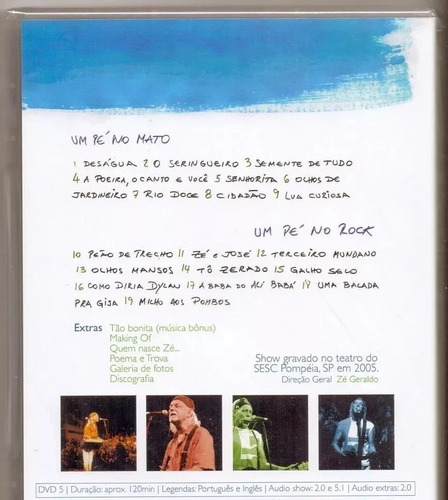 UM PÉ NO MATO
1 DESÁGUA 2 O SERINGUEIRO 3 SEMENTE DE TUDO
4 A POEIRA, O CANTO E VOCÊ 5 SENHORITA 6 OLHOS DE
JARDINEIRO 7 RIO DOCE 8 CIDADÃO 9 LUA CURIOSA
UM PÉ NO ROCK
10 PEÃO DE TRECHO 11 ZÉ E JOSÉ 12 TERCEIRO MUNDANO
13 OLHOS MANSOS 14 TÔ ZERADO 15 GALHO SECO
16 COMO DIRIA DYLAN 17 A BABA DO ALI BABÁ 18 UMA BALADA
PRA GISA 19 MILHO AOS POMBOS
Extras Tão bonita (música bônus)
Making Of
Quem nasce Zé...
Poema e Trova
Galeria de fotos
Discografia
Show gravado no teatro do
SESC Pompéia, SP em 2005.
Direção Geral Zé Geraldo
DVD 5 | Duração: aprox. 120min | Legendas: Português e Inglês | Audio show: 2.0 e 5.1 | Audio extras: 2.0